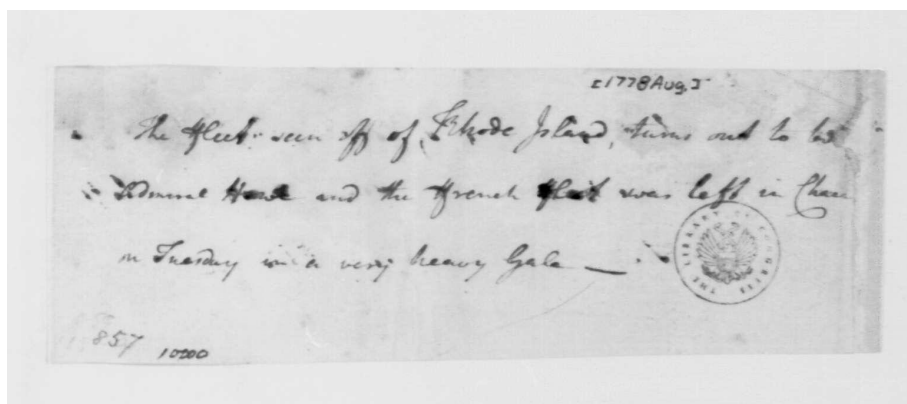 [1778 Aug.]
The Fleet seen off of Rhode Island, turns out to be
Admiral Howe and the French Fleet was left in Chace
on Tuesday in a very heavy Gale —
THE LIBRARY OF CONGRESS
857 10200